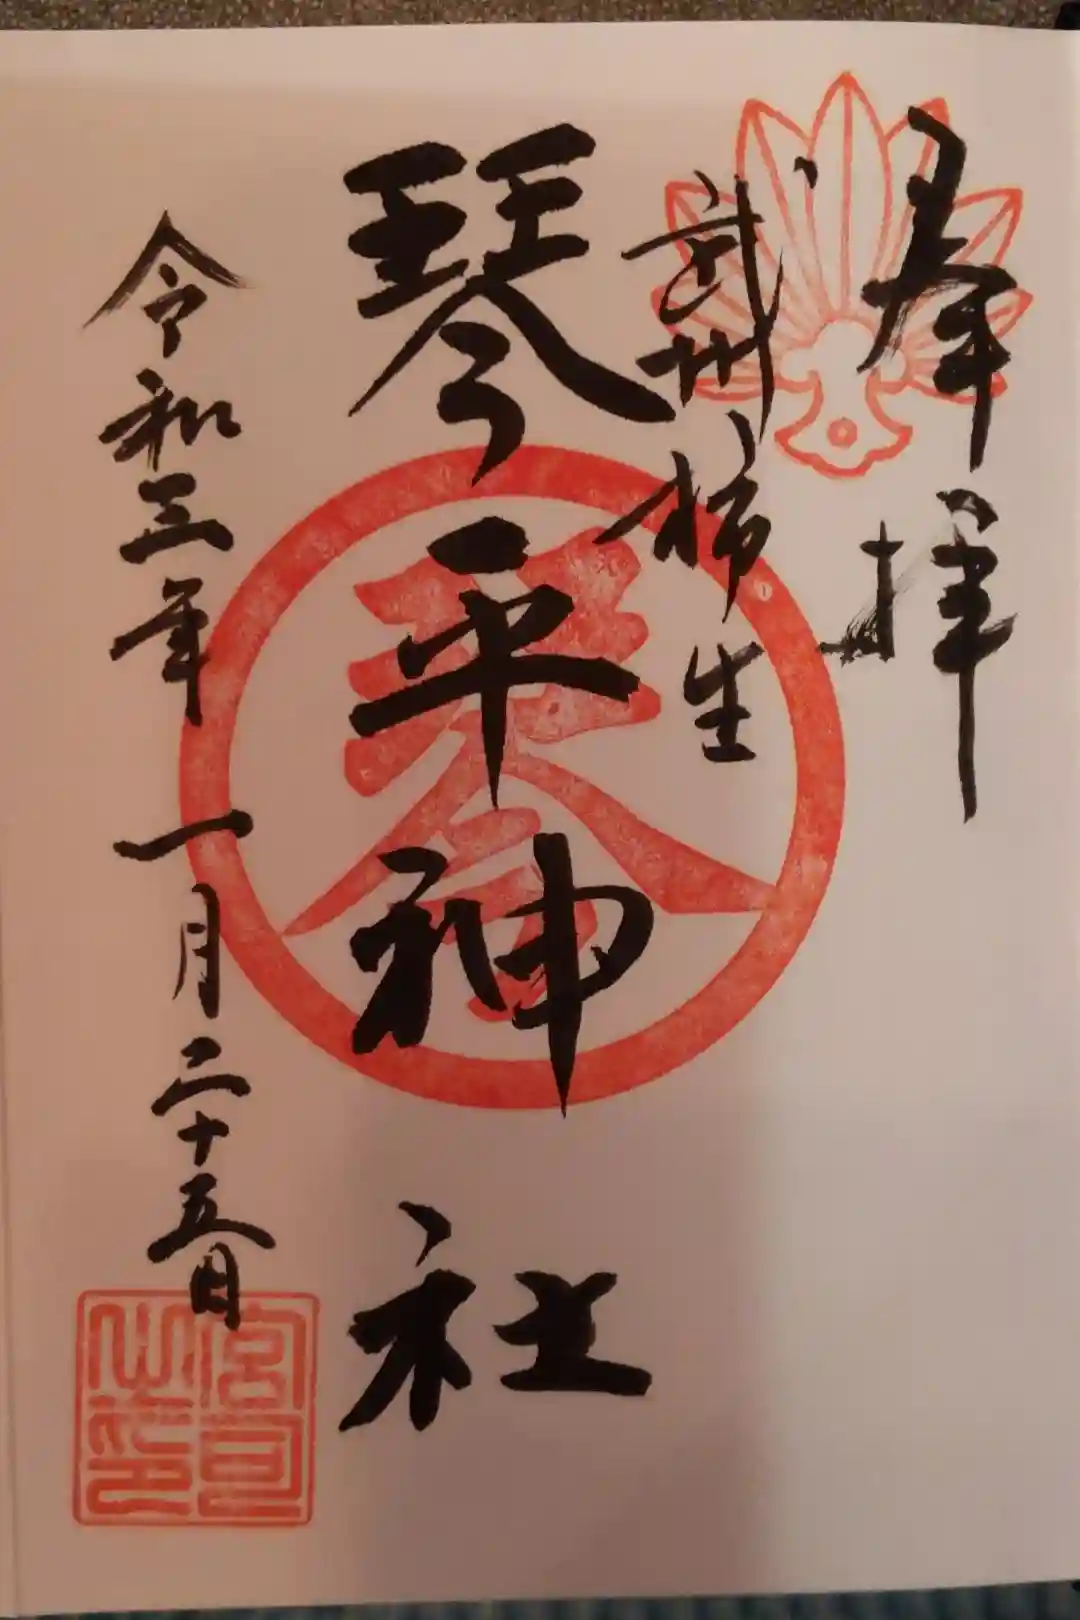 奉拝
武州柿生
琴平神社
琴
令和三年一月二十五日
宮司之印